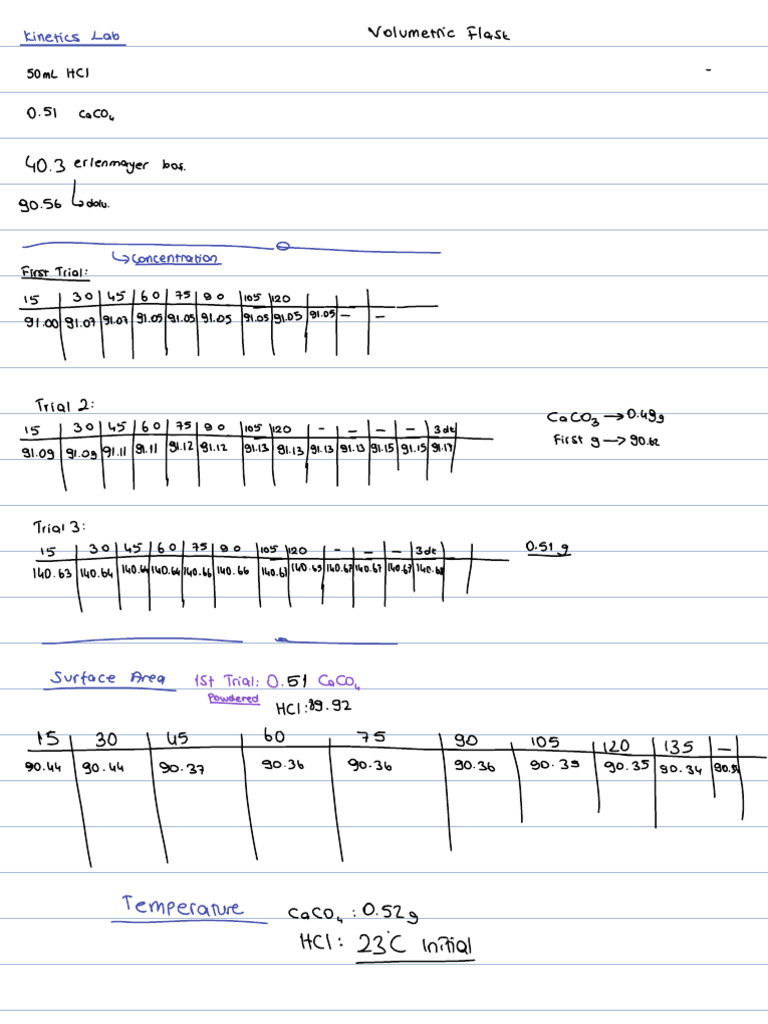 Kinetics Lab
Volumetric Flask
50mL HCl
0.51 CaCO₄
40.3 erlenmayer boş.
90.56 ↳ dolu.
↳ Concentration
First Trial:
15 30 45 60 75 90 105 120
91.00 91.07 91.07 91.05 91.05 91.05 91.05 91.05 91.05 – –
Trial 2:
15 30 45 60 75 90 105 120 – – – – 3dk
91.09 91.09 91.11 91.11 91.12 91.12 91.13 91.13 91.13 91.13 91.15 91.15 91.17
CaCO₃ → 0.49g
First g → 90.62
Trial 3:
15 30 45 60 75 90 105 120 – – – 3dk
140.63 140.64 140.64 140.64 140.66 140.66 140.67 140.67 140.67 140.67
0.51 g
Surface Area
1st Trial: 0.51 CaCO₄
Powdered
HCl: 89.92
15 30 45 60 75 90 105 120 135 –
90.44 90.44 90.37 90.36 90.36 90.36 90.35 90.35 90.34
Temperature
CaCO₄ : 0.52g
HCl : 23°C initial